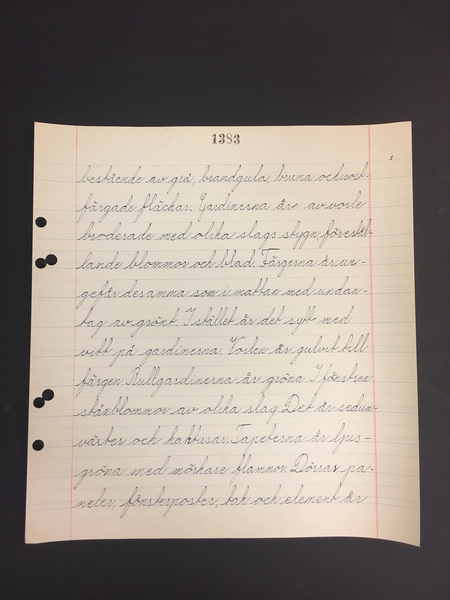 1383
bestående av grå, brandgula, bruna och rost-
färgade fläckar. Gardinerna är av voile
broderade med olika slags stygn, förestäl-
lande blommor och blad. Färgerna är un-
gefär desamma som i mattan med undan-
tag av grönt. I stället är det sytt med
vitt på gardinerna. Voilen är gulvit till
färgen. Rullgardinerna är gröna. I fönstren
står blommor av olika slag. Det är sedum-
växter och kaktusar. Tapeterna är ljus-
gröna med mörkare flammor. Dörrar, pa-
neler, fönsterposter, tak och element är